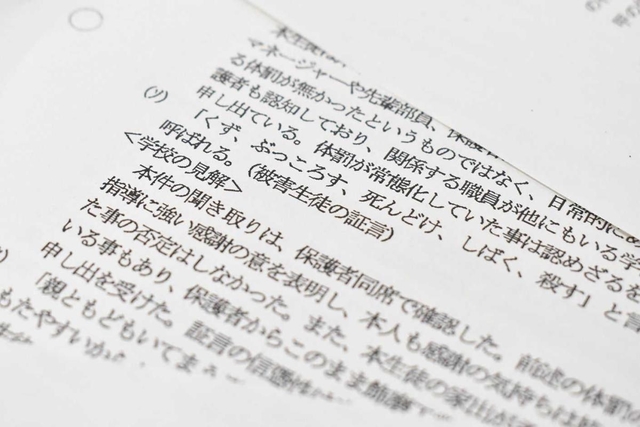 マネージャーや先輩部員、保護者
る体罰が無かったというものではなく、日常的に
護者も認知しており、関係する職員が他にもいる学
申し出ている。体罰が常態化していた事は認めざるを
(ソ) 「くず、ぶっころす、死んどけ、しばく、殺す」と言
呼ばれる。 (被害生徒の証言)
<学校の見解>
本件の聞き取りは、保護者同席で確認した。前述の体罰の
指導に強い感謝の意を表明し、本人も感謝の気持ちは
た事の否定はしなかった。また、本生徒の家出が
いる事もあり、保護者からこのまま
申し出を受けた。 証言の信憑性
「親ともどもいてま
もたやすいか